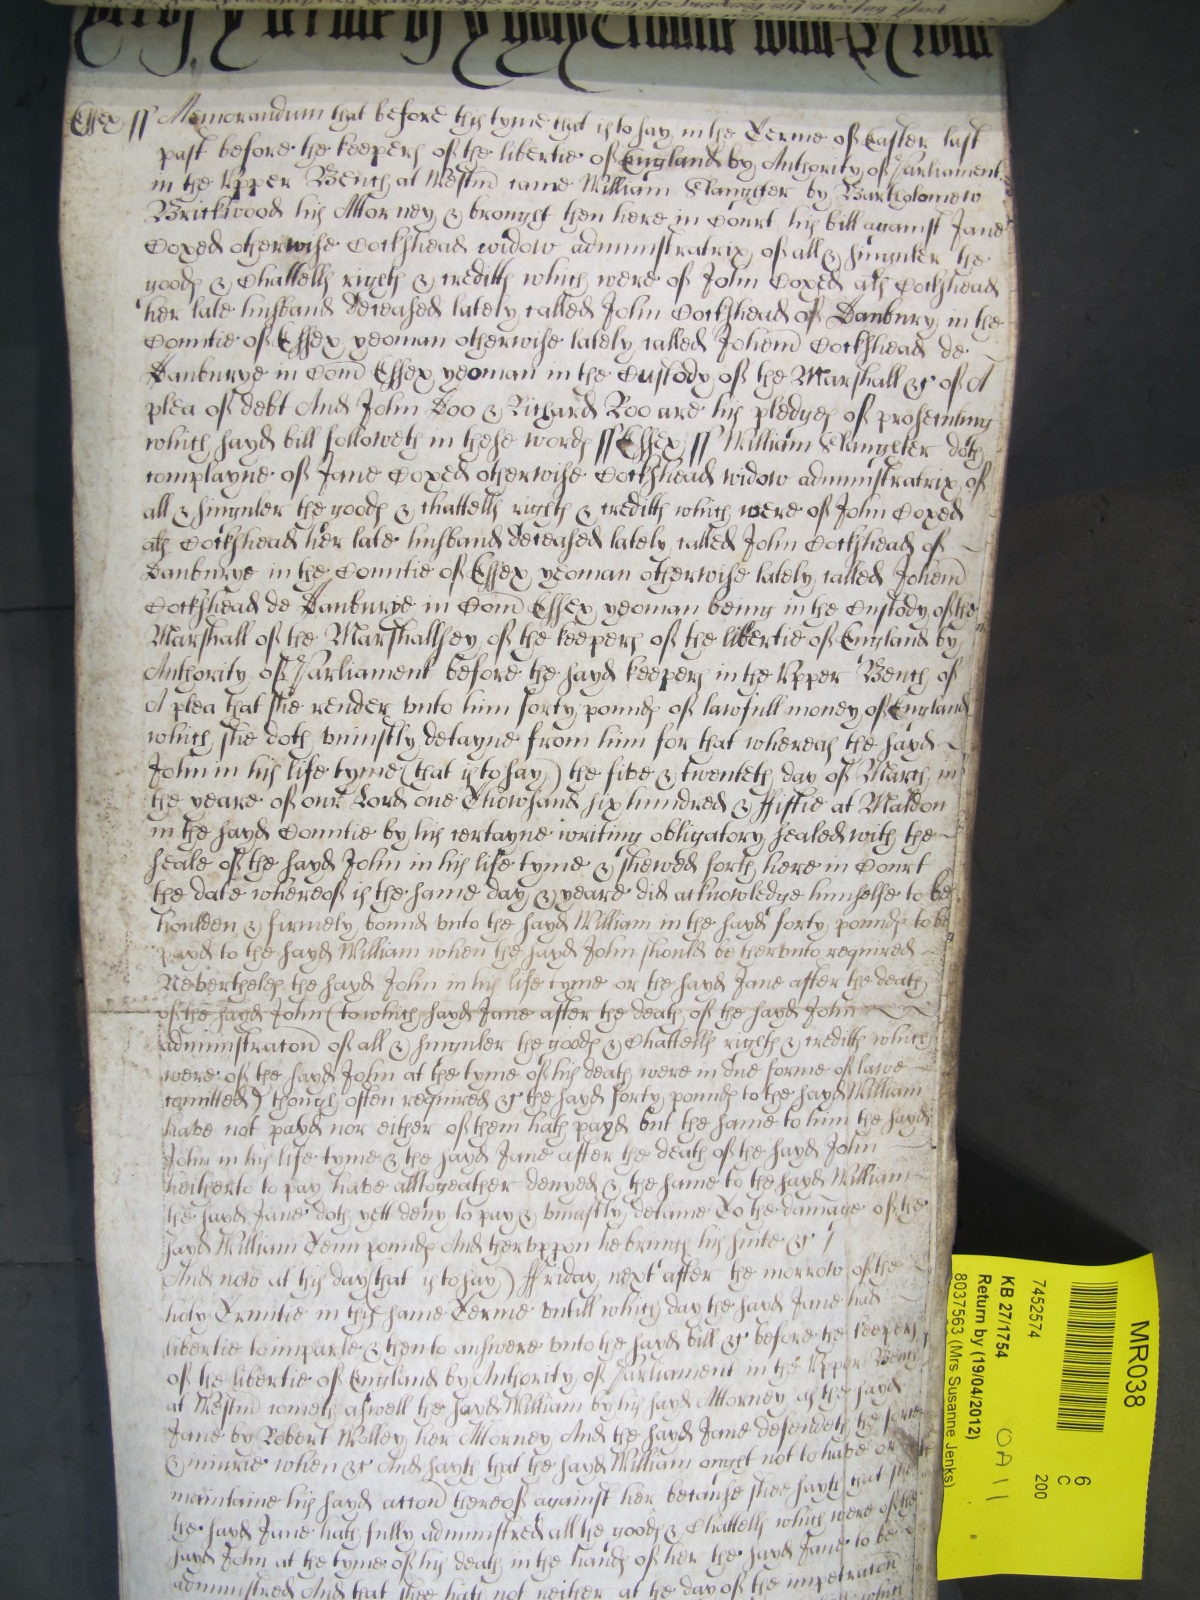 Essex ss Memorandum that before this tyme that is to say in the Terme of Easter last
past before the keepers of the libertie of England by Authority of Parliament
in the Upper Bench at Westm̄ came William Slaughter by Bartholomew
Brickwood his Attorney & brought then here in Court his bill against Jane
Coxed otherwise Cockshead widow administratrix of all & singuler the
goods & Chattells rights & creditts which were of John Coxed als Cockshead
her late husband deceased lately called John Cockshead of Danbury in the
Countie of Essex yeoman otherwise lately called Johem̄ Cockshead de
Danburye in Com̄ Essex yeoman in the Custody of the Marshall &c of A
plea of debt And John Doo & Richard Roo are his pledges of prosecuting
which sayd bill followeth in these words ss Essex ss William Slaughter doth
complayne of Jane Coxed otherwise Cockshead widow administratrix of
all & singuler the goods & chattells rights & creditts which were of John Coxed
als Cockshead her late husband deceased lately called John Cockshead of
Danburye in the Countie of Essex yeoman otherwise lately called Johem̄
Cockshead de Danburye in Com̄ Essex yeoman being in the Custody of the
Marshall of the Marshallsey of the keepers of the libertie of England by
Authority of Parliament before the sayd keepers in the Upper Bench of
A plea that she render unto him forty pounds of lawfull money of England
which she doth uniustly detayne from him for that whereas the sayd
John in his life tyme (that is to say) the five & twenteth day of March in
the yeare of our Lord one Thowsand six hundred & ffiftie at Maldon
in the sayd Countie by his certayne writing obligatory sealed with the
seale of the sayd John in his life tyme & shewed forth here in Court
the date whereof is the same day & yeare did acknowledge himselfe to be
houlden & firmely bound unto the sayd William in the sayd forty pounds to be
payd to the sayd William when the sayd John should be therunto required
Neverthelesse the sayd John in his life tyme or the sayd Jane after the death
of the sayd John (to which sayd Jane after the death of the sayd John
administracon̄ of all & singuler the goods & Chattells rights & creditts which
were of the sayd John at the tyme of his death were in due forme of lawe
comitted) though often required &c the sayd forty pounds to the sayd William
have not payd nor either of them hath payd but the same to him the sayd
John in his life tyme & the sayd Jane after the death of the sayd John
heitherto to pay have alltogeather denyed & the same to the sayd William
the sayd Jane doth yett deny to pay & uniustly detaine To the damage of the
sayd William Tenn pounds And theruppon he brings his suite &c
And now at this day (that is to say) ffriday next after the morrow of the
holy Trinitie in this same Terme untill which day the sayd Jane had
libertie to imparle & then to answere unto the sayd bill &c before the keepers
of the libertie of England by Authority of Parliament in the Upper Bench
at Westm̄ cometh aswell the sayd William by his sayd Attorney as the sayd
Jane by Robert Wolley her Attorney And the sayd Jane defendeth the force
& iniurie when &c And sayth that the sayd William ought not to have or
maintaine his sayd accon̄ thereof against her because shee sayth that shee
the sayd Jane hath fully administred all the goods & Chattells which were of the
sayd John at the tyme of his death in the hands of her the sayd Jane to be
administred And that shee hath not neither at the day of the impetracon̄
MR038
6
C
200
7452574
KB 27/1754
Return by (19/04/2012)
8037563 (Mrs Susanne Jenks)